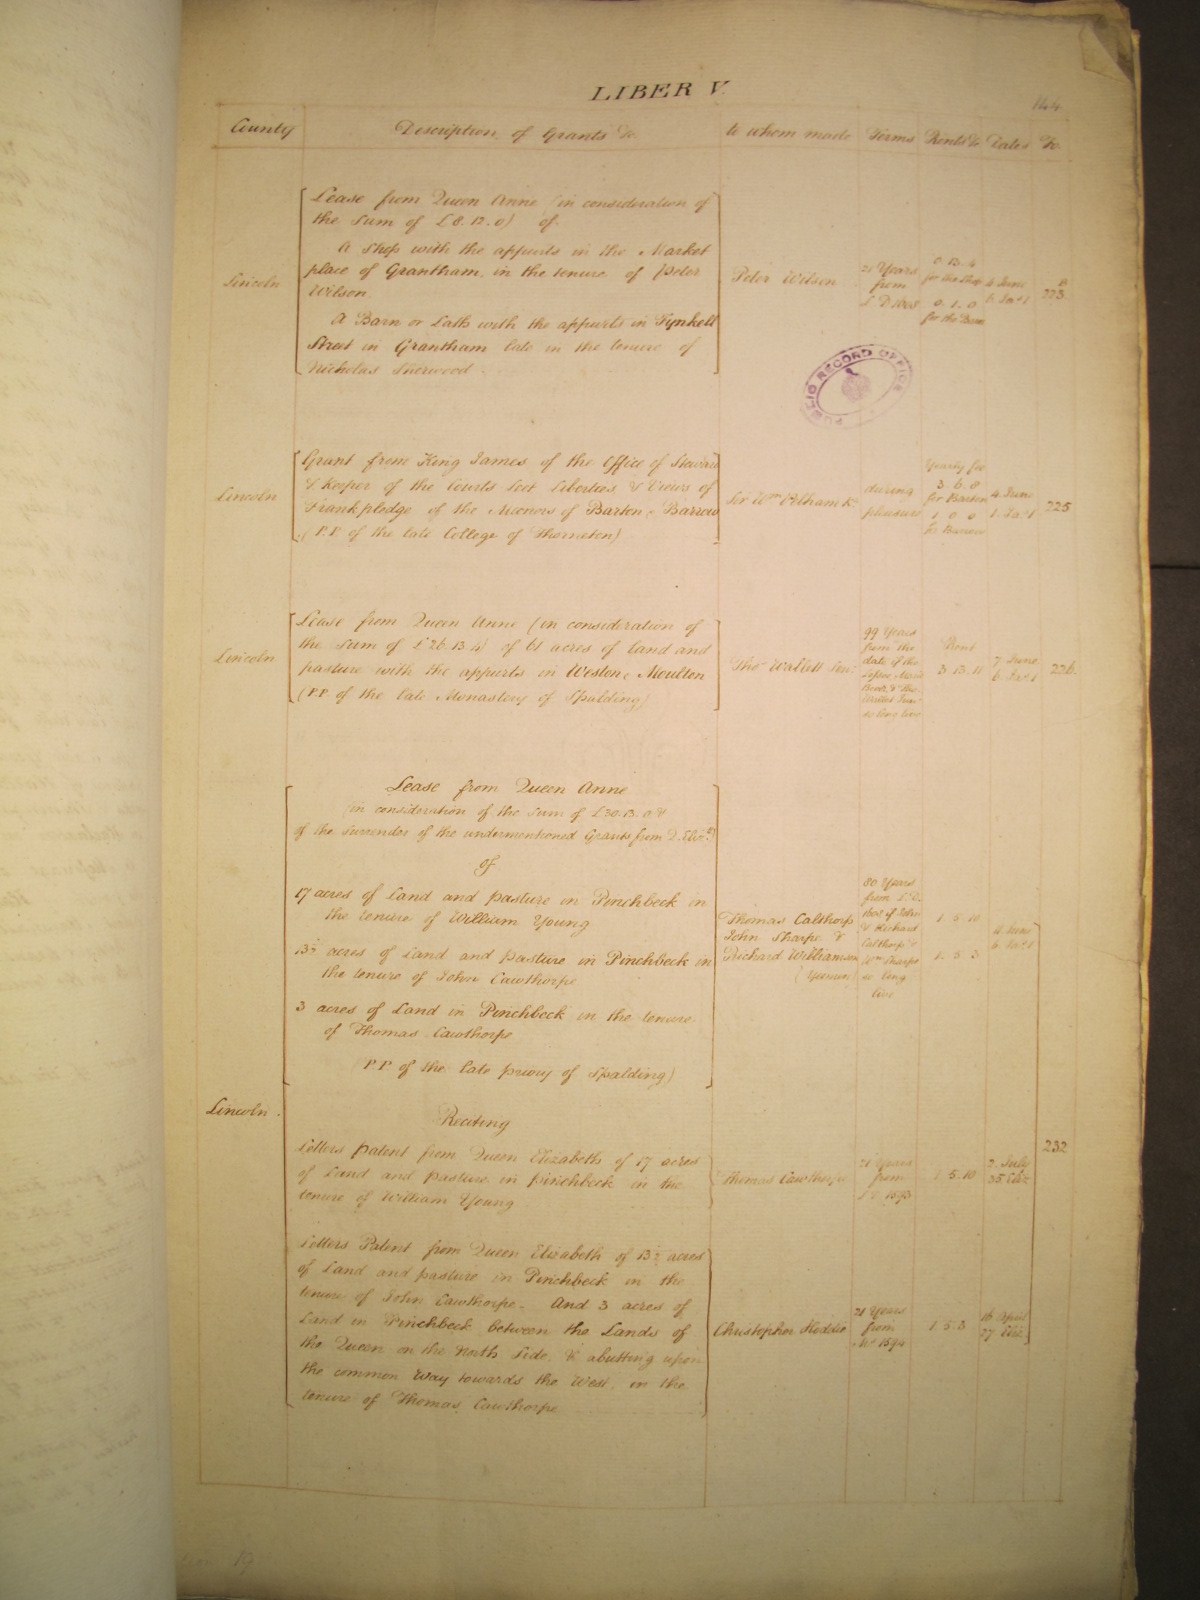 LIBER V
144
County
Description of Grants &c
to whom made
Terms
Rents &c
Dates
Fo
Lincoln
Lease from Queen Anne (in consideration of
the Sum of £8.12.0) of
A Shop with the appurts in the Market
place of Grantham in the tenure of Peter
Wilson
A Barn or Lath with the appurts in Fynkell
Street in Grantham late in the tenure of
Nicholas Sherwood
Peter Wilson
21 Years
from
L D 1603
0. 13. 4
for the Shop
0. 1. 0
for the Barn
4 June
6 Jas 1
223
PUBLIC RECORD OFFICE
Lincoln
Grant from King James of the Office of Steward
& Keeper of the Courts Leet Liberties & Views of
Frankpledge of the Manors of Barton & Barrow
(P.P. of the late College of Thornton)
Sir Wm Pelham Kt
during
pleasure
Yearly fee
3. 6. 8
for Barton
1. 0. 0
for Barrow
4 June
1. Jas 1
225
Lincoln
Lease from Queen Anne (in consideration of
the Sum of £26.13.4) of 61 acres of land and
pasture with the appurts in Weston & Moulton
(P.P. of the late Monastery of Spalding)
Thos Wallett Senr
99 Years
from the
date if the
Lessee
Wallet Junr
so long live
Rent
3. 13. 11
7 June
6 Jas 1
226
Lease from Queen Anne
(in consideration of the Sum of £30.13.0 &
of the surrender of the undermentioned Grants from Q. Elizth)
of
17 acres of Land and pasture in Pinchbeck in
the tenure of William Young
13½ acres of Land and pasture in Pinchbeck in
the tenure of John Cawthorpe
3 acres of Land in Pinchbeck in the tenure
of Thomas Cawthorpe
(P.P. of the late priory of Spalding)
Thomas Calthorp
John Sharpe &
Richard Williamson
(Yeomen)
80 Years
from L.D.
if John
& Richard
Calthorp &
Wm Sharpe
so long
live
1. 5. 10
1. 5. 3
11 June
6 Jas 1
Lincoln
Reciting
Letters patent from Queen Elizabeth of 17 acres
of Land and pasture in pinchbeck in the
tenure of William Young
Thomas Cawthorpe
21 Years
from
L D 1593
1. 5. 10
2. July
35 Eliz
232
Letters Patent from Queen Elizabeth of 13½ acres
of Land and pasture in Pinchbeck in the
tenure of John Cawthorpe - And 3 acres of
Land in Pinchbeck between the Lands of
the Queen on the North Side, & abutting upon
the common way towards the West, in the
tenure of Thomas Cawthorpe
Christopher Heddie
21 Years
from
1594
1. 5. 3
16 April
Eliz
19